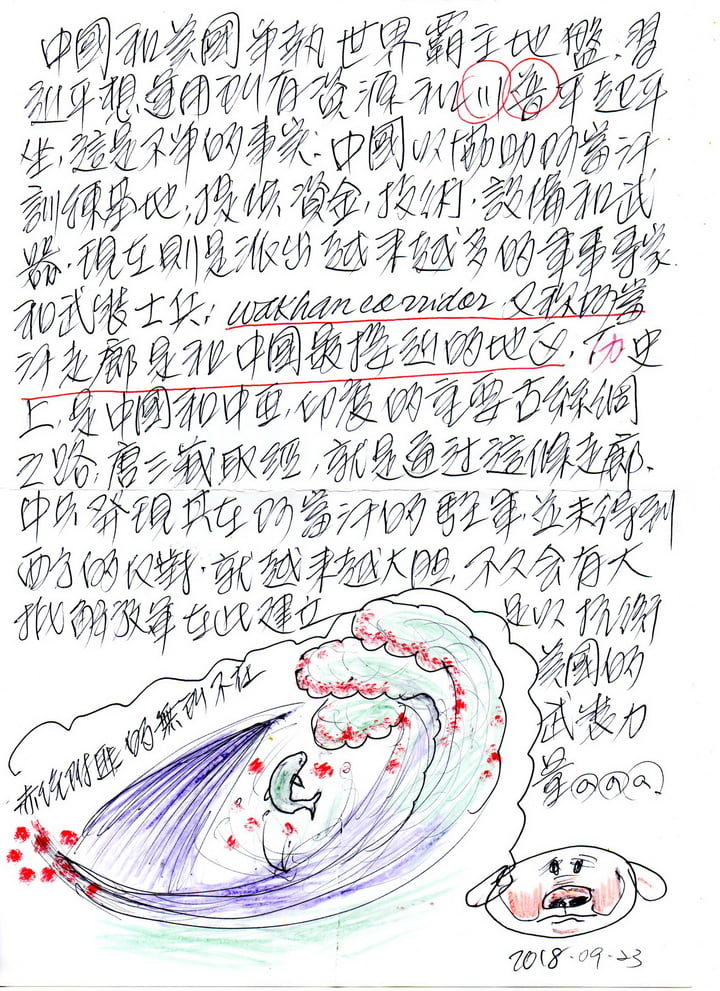 中國和美國爭執世界霸主地盤,習
近平想運用所有資源和川普平起平
坐,這是不爭的事實.中國以協助阿富汗
訓練基地;提供資金,技術,設備和武
器.現在則是派出越來越多的軍事專家
和武裝士兵; wakhan corridor,又稱阿富
汗走廊是和中國最接近的地區,历史
上,是中國和中亞,印度的主要古絲綢
之路;唐三藏取經,就是通过這條走廊.
中共發現其在阿富汗的駐軍,並未得到
西方的反對.就越來越大胆,不久会有大
批解放軍在此建立 足以抗衡
美國的
武裝力
量
的無所不在
2018.09.23